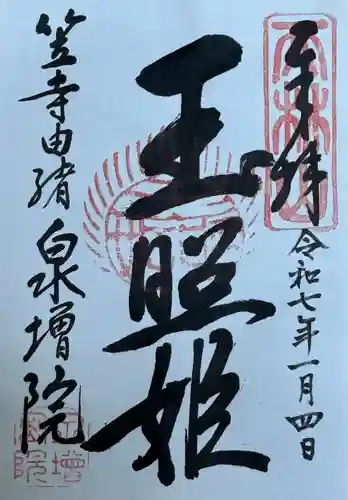 奉拝
令和七年一月四日
玉照姫
笠寺由緒 泉増院